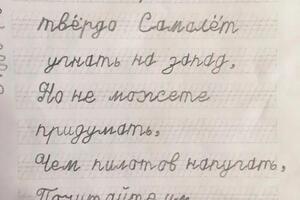 твёрдо Самолёт
угнать на запад,
Но не можете
придумать,
Чем пилотов напугать,
Почитайте им